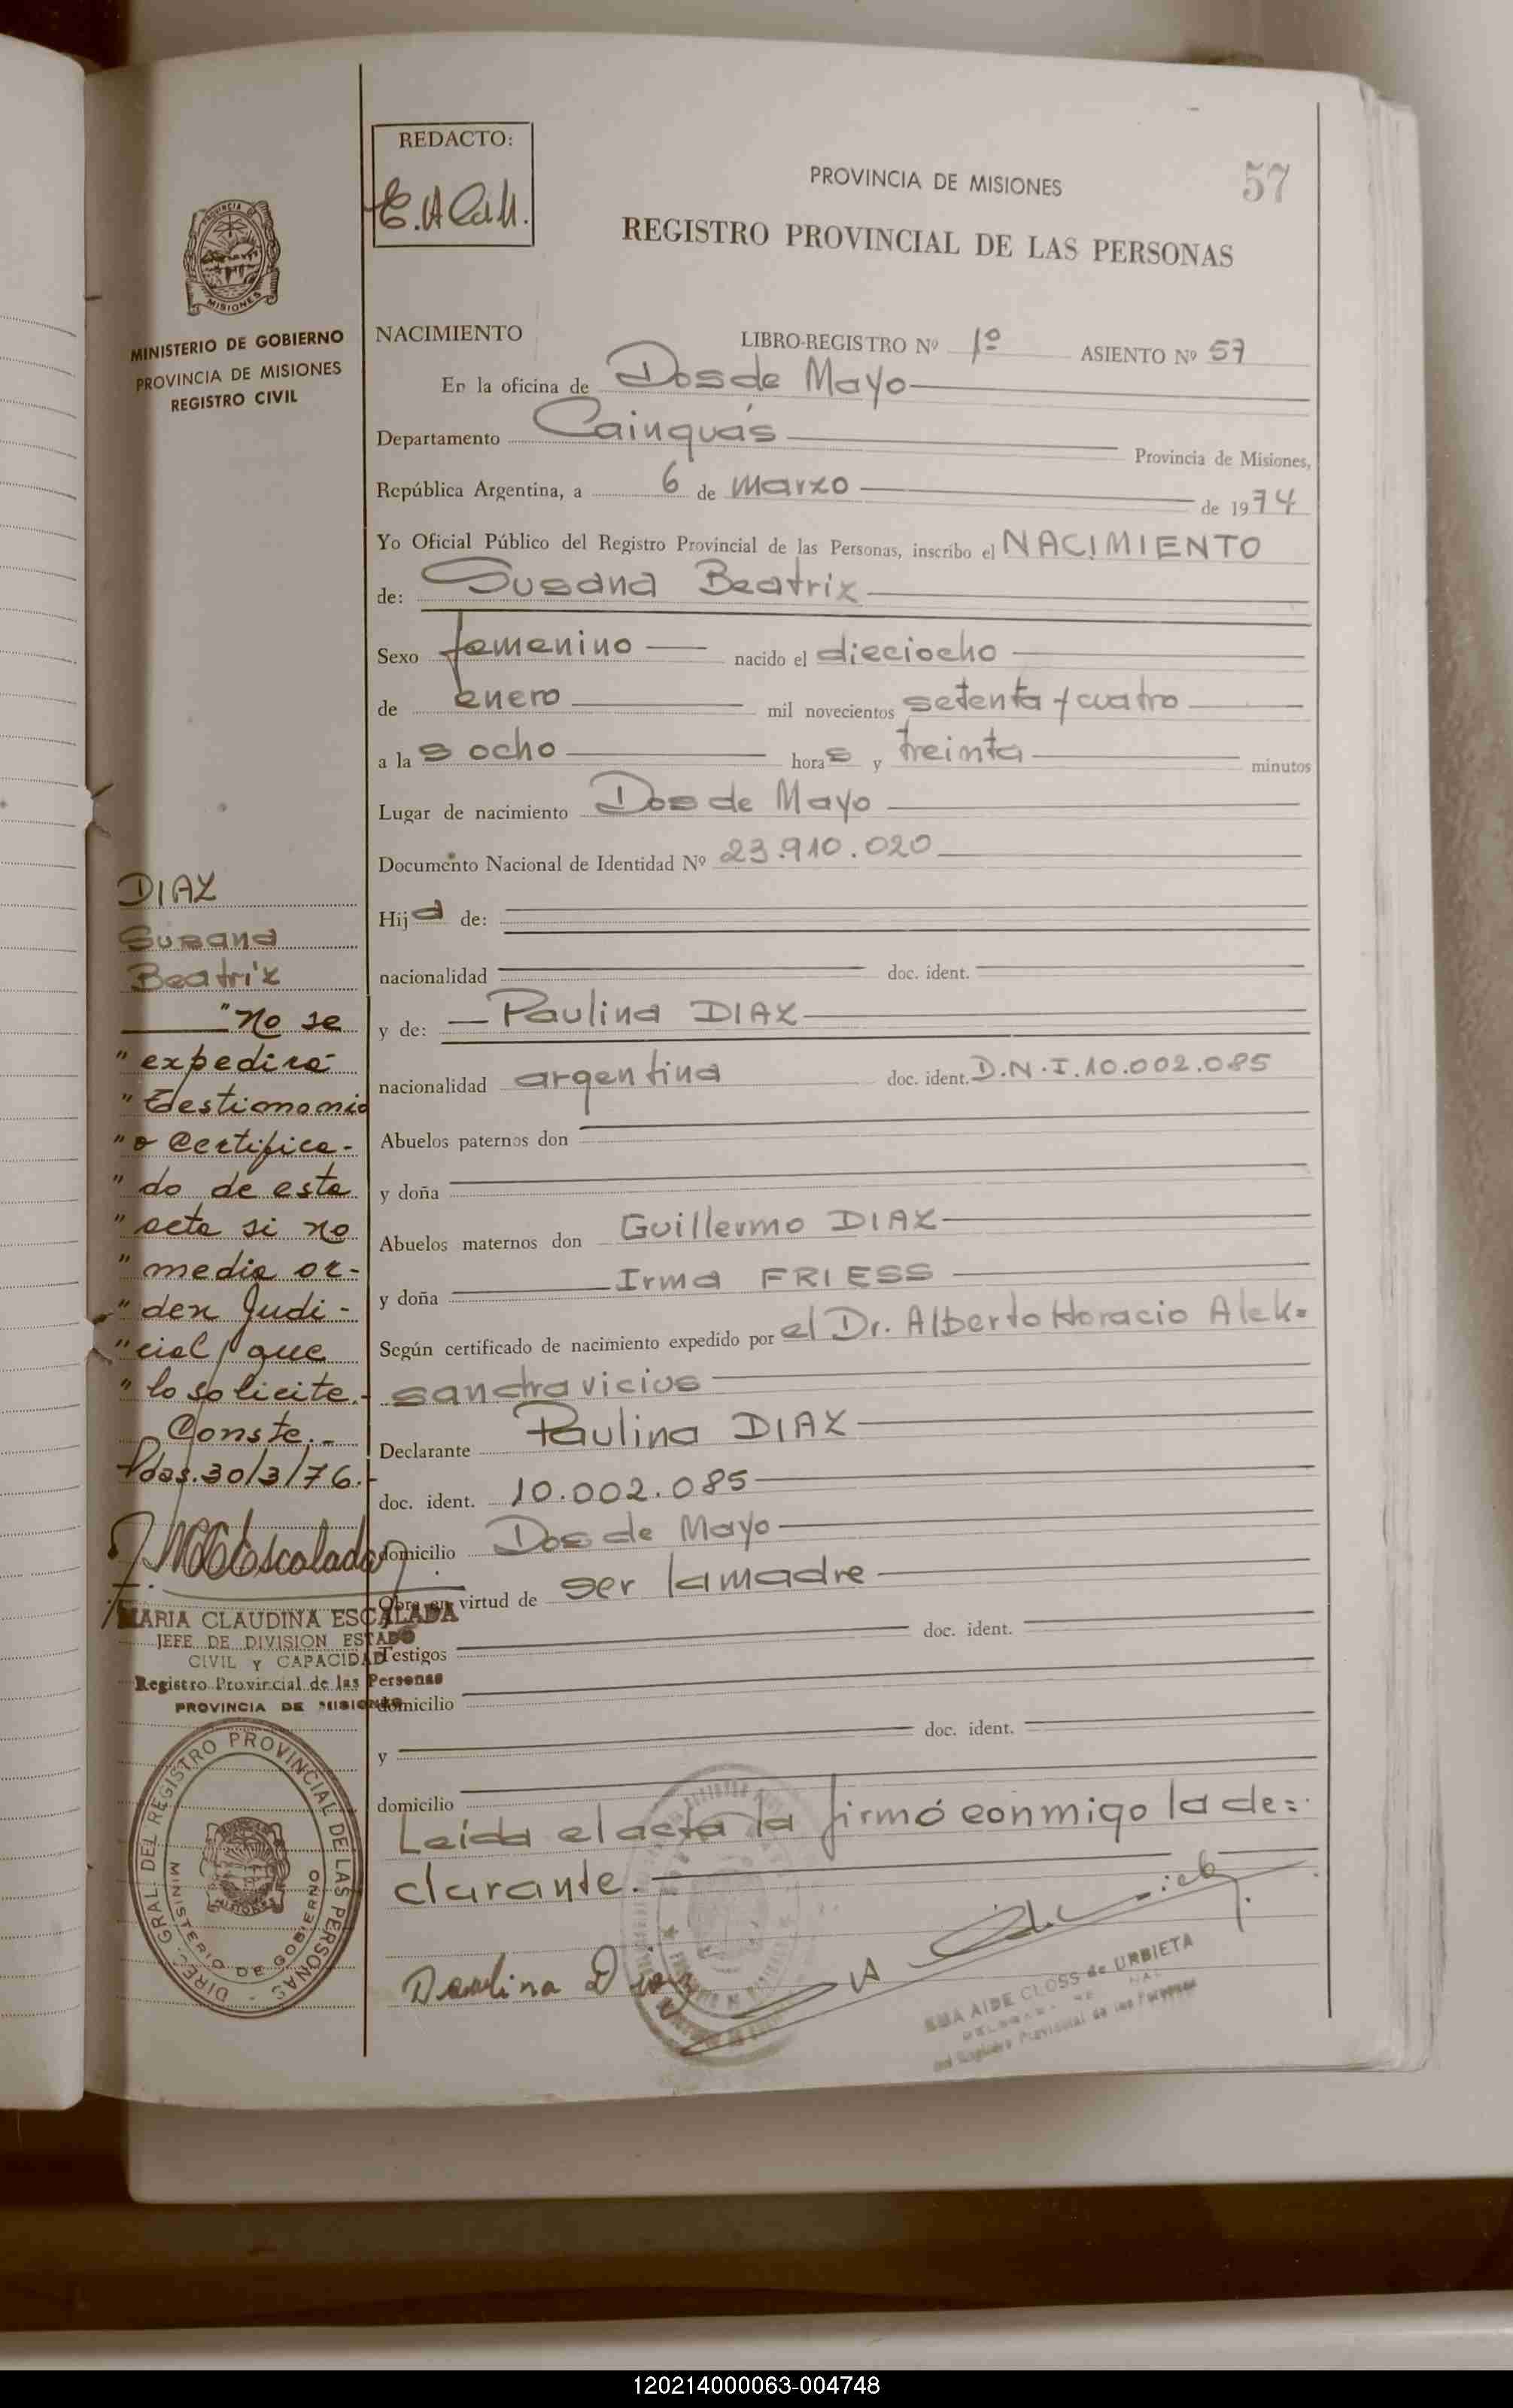 REDACTO:
E.A Call.
PROVINCIA DE MISIONES
57
REGISTRO PROVINCIAL DE LAS PERSONAS
PROVINCIA DE
MISIONES
MINISTERIO DE GOBIERNO
PROVINCIA DE MISIONES
REGISTRO CIVIL
NACIMIENTO LIBRO-REGISTRO Nº 1º ASIENTO Nº 57
En la oficina de Dos de Mayo
Departamento Cainguás Provincia de Misiones,
República Argentina, a 6 de Marzo de 1974
Yo Oficial Público del Registro Provincial de las Personas, inscribo el NACIMIENTO
de: Susana Beatriz
Sexo femenino nacido el dieciocho
de enero mil novecientos setenta y cuatro
a las ocho horas y treinta minutos
Lugar de nacimiento Dos de Mayo
Documento Nacional de Identidad Nº 23.910.020
Hija de:
nacionalidad doc. ident.
y de: Paulina DIAZ
nacionalidad argentina doc. ident. D.N.I.10.002.085
Abuelos paternos don
y doña
Abuelos maternos don Guillermo DIAZ
y doña Irma FRIESS
Según certificado de nacimiento expedido por el Dr. Alberto Horacio Alek=
sandravicius
Declarante Paulina DIAZ
doc. ident. 10.002.085
domicilio Dos de Mayo
Obra en virtud de ser la madre
doc. ident.
Testigos
domicilio
doc. ident.
y
domicilio
Leída el acta la firmó conmigo la de=
clarante.
Paulina Diaz
CLOSS de URBIETA
del Registro Provincial de las Personas
DIAZ
Susana
Beatriz
"No se
"expedirá
"Testimonio
"o Certifica-
"do de esta
"acta si no
"media or-
"den Judi-
"cial que
"lo solicite.-
Conste.-
Pdas.30/3/76.-
MARIA CLAUDINA ESCALADA
JEFE DE DIVISION ESTADO
CIVIL Y CAPACIDAD
Registro Provincial de las Personas
PROVINCIA DE MISIONES
DIREC. GRAL. DEL REGISTRO PROVINCIAL DE LAS PERSONAS
MINISTERIO DE GOBIERNO
120214000063-004748